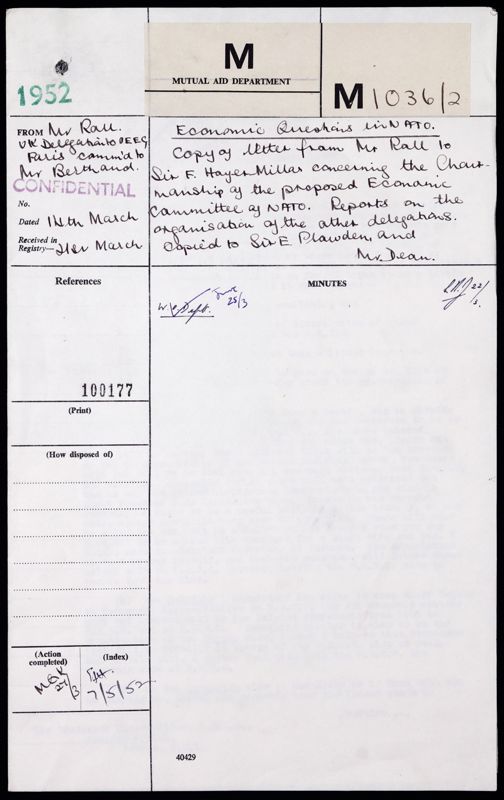 1952
M
MUTUAL AID DEPARTMENT
M1036/2
FROM Mr Rall.
UK Delegation to OEEC
Paris comm'd to
Mr Berthand.
CONFIDENTIAL
No.
Dated 14th March
Received in
Registry— 21st March
Economic Questions in NATO.
Copy of letter from Mr Rall to
Sir F. Hoyer Millar concerning the Chair-
manship of the proposed Economic
Committee of NATO. Reports on the
organisation of the other delegations.
Copied to Sir E. Plowden, and
Mr. Dean.
References
MINUTES
Dept.
25/3
22/
3.
100177
(Print)
(How disposed of)
(Action
completed)
(Index)
27/3
7/5/52
40429